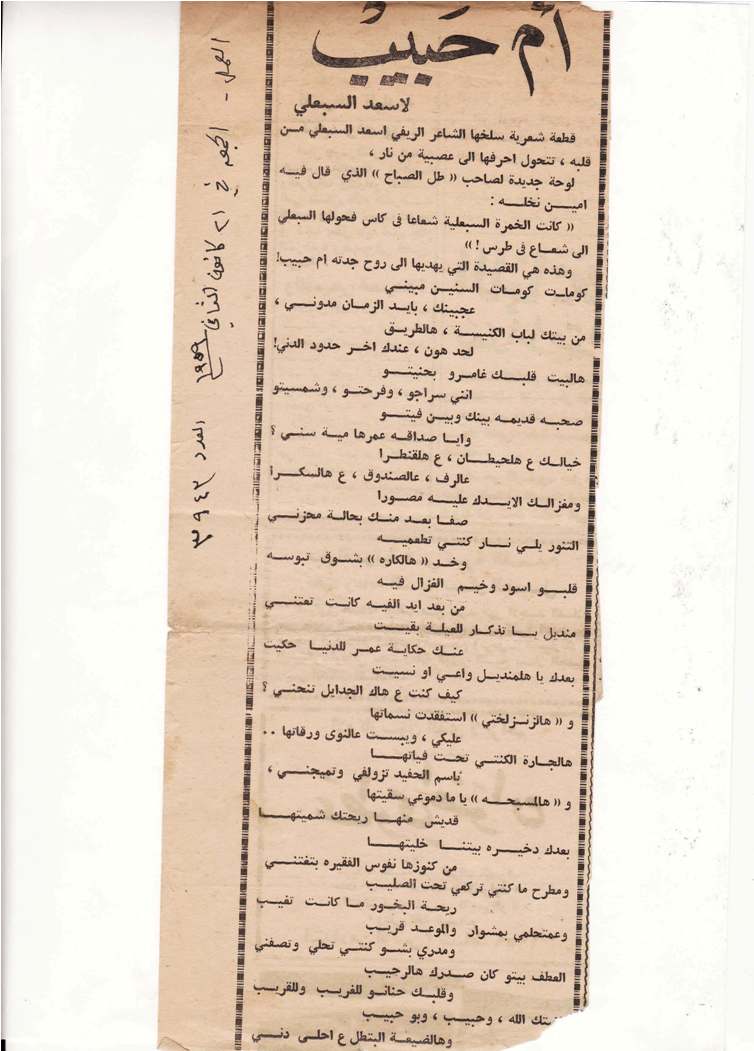 أم حبيب
لاسعد السبعلي
قطعة شعرية سلخها الشاعر الريفي اسعد السبعلي مـن
قلبه ، تتحول احرفها الى عصبية من نار ،
لوحة جديدة لصاحب « طل الصباح » الذي قال فيـه
اميـــن نخلـــه :
« كانت الخمرة السبعلية شعاعا فى كاس فحولها السبعلي
الى شعـاع فى طرس ! »
وهذه هي القصيدة التي يهديها الى روح جدته ام حبيب!
كومات كومات السنيـن مبيني
عجبينك ، بايـد الزمـان مدونـــي ،
من بيتك لباب الكنيسـة ، هالطريـق
لحد هون ، عندك اخر حدود الدني!
هالبيت قلبـــك غامـرو بحنيتـــو
انتي سراجو ، وفرحتـو ، وشمسيتو
صحبه قديمه بينك وبيـن فيتـــو
وايـا صداقـه عمرها ميـة سنـي ؟
خيالـك ع هلحيطـان ، ع هلقنطـرا
عالرف ، عالصندوق ، ع هالسكـرا
ومغزالـك الايـدك عليـــه مصورا
صفـا بعد منـك بحالـة محزنـي
التنور يلي نـار كنتـي تطعميـــه
وخـد « هالكاره » بشـوق تبوسـه
قلبـــو اسود وخيـم الغزال فيـه
من بعد ايد الفيـه كانـت تعتنـــي
منديل بـــا تذكـار للعيلـة بقيـــت
عنـــك حكايـة عمـر للدنيـا حكيت
بعدك يا هلمنديـل واعـي او نسيـــت
كيف كنت ع هاك الجدايل تنحني ؟
و « هالزنـزلختي » استفقدت نسماتها
عليكي ، ويبسـت عالنوى ورقاتها ..
هالجارة الكنتـي تحـت فياتهـــا
باسم الحفيد تزولفـي وتميجنـــي ،
و « هالمسبحـه » يا ما دموعي سقيتها
قديش منهـــا ريحتك شميتهـــا
بعدك دخيـره بيتنـــا خليتهـــا
من كنوزها نفوس الفقيره بتغتنـــي
ومطرح ما كنتي تركعي تحت الصليـب
ريحـة البخـور مـا كانـت تغيـب
وعمتحلمي بمشـوار والموعـد قريـب
ومدري بشـو كنتـي تحلي وتصفني
العطف بيتو كان صدرك هالرحيـب
وقلبـك حنانـو للغريـب وللقريـب
الله ، وحبيـب ، وبو حبيـب
وهالضيعـة البتطل ع احلـى دنـي
العمل - الجمعة في ٢١ كانون الثاني العدد ٣٩٤٣